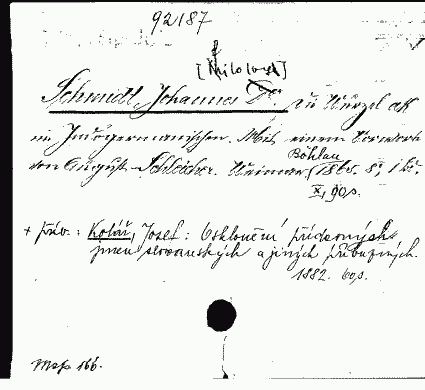 92187
Schmidt, Johannes Zu Wurzel AK
im Indogermanischen. Mit einem Vorwort
von August Schleicher. Weimar, Böhlau 1865. 8°, 1 br.
X, 90 s.
+ přív. : Kolář, Josef : O sklonění přídavných
jmen slovanských a jiných příbuzných.
1882. 60 s.